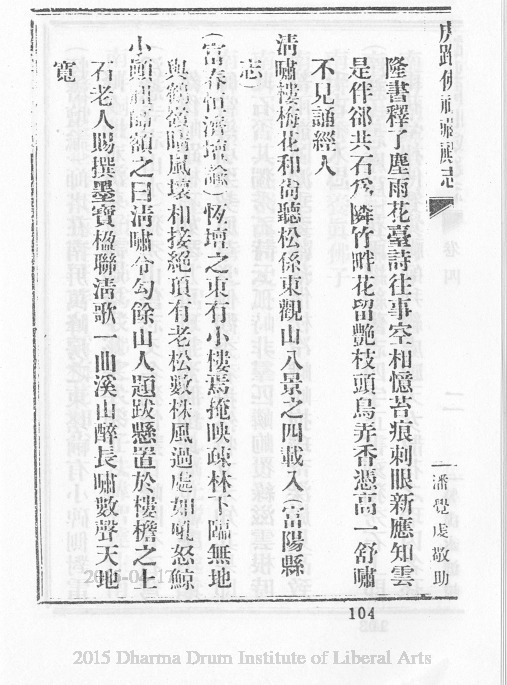 虎跑佛祖藏殿志
潘覺虔敬助
隆書釋了塵雨花臺詩往事空相憶苔痕刺眼新應知雲
是伴邻共石為隣竹畔花留艷枝頭鳥弄香憑高一舒嘯
不見誦經人
清嘯樓梅花和尙聽松係東觀山八景之四載入(富陽縣
志)
(富春恒濟壇諭)恆壇之東有小樓焉掩映疎林下臨無地
與鶴嶺晴嵐壞相接絕頂有老松數株風過處如吼怒鯨
小顚禪師額之曰淸嘯令勾餘山人題跋懸置於樓檐之上
石老人賜撰墨寶楹聯淸歌一曲溪山醉長嘯數聲天地
寬
104
2015 Dharma Drum Institute of Liberal Arts